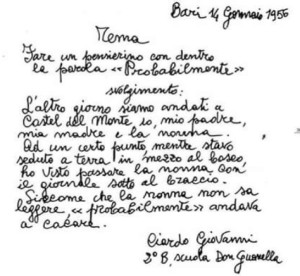 Bari 14 Gennaio 1956
Tema
Fare un pensierino con dentro
la parola «Probabilmente»
svolgimento:
L'altro giorno siamo andati a
Castel del Monte io, mio padre,
mia madre e la nonna.
Ad un certo punto, mentre stavo
seduto a terra in mezzo al bosco,
ho visto passare la nonna con
il giornale sotto al braccio.
Siccome che la nonna non sa
leggere, «probabilmente» andava
a cacare.
Ciardo Giovanni
2° B, scuola Don Guanella